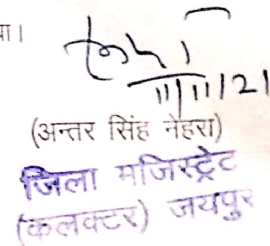 या।
11/11/21
(अन्तर सिंह नेहरा)
जिला मजिस्ट्रेट
(कलक्टर) जयपुर